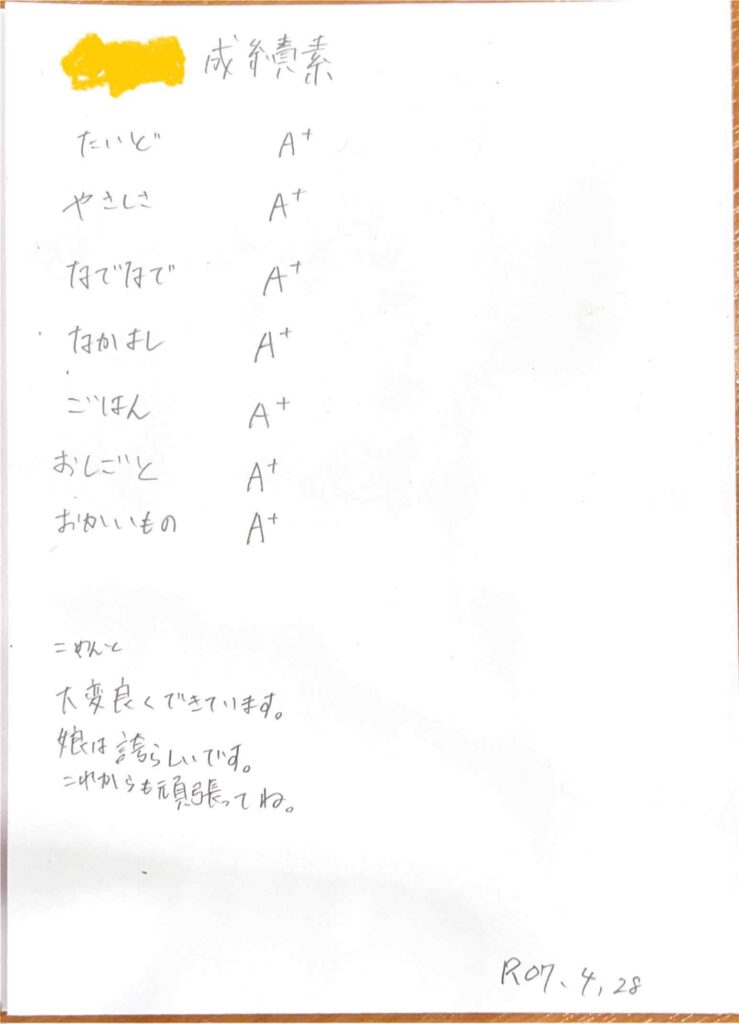 成績素
たいど A+
やさしさ A+
なでなで A+
なかはし A+
ごはん A+
おしごと A+
おかいもの A+
こめんと
大変良くできています。
娘は誇らしいです。
これからも頑張ってね。
R07.4.28